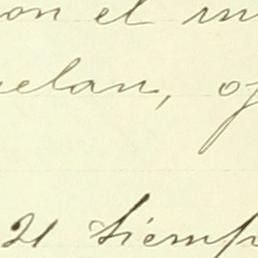 on el m
elan, of
21 tiemp